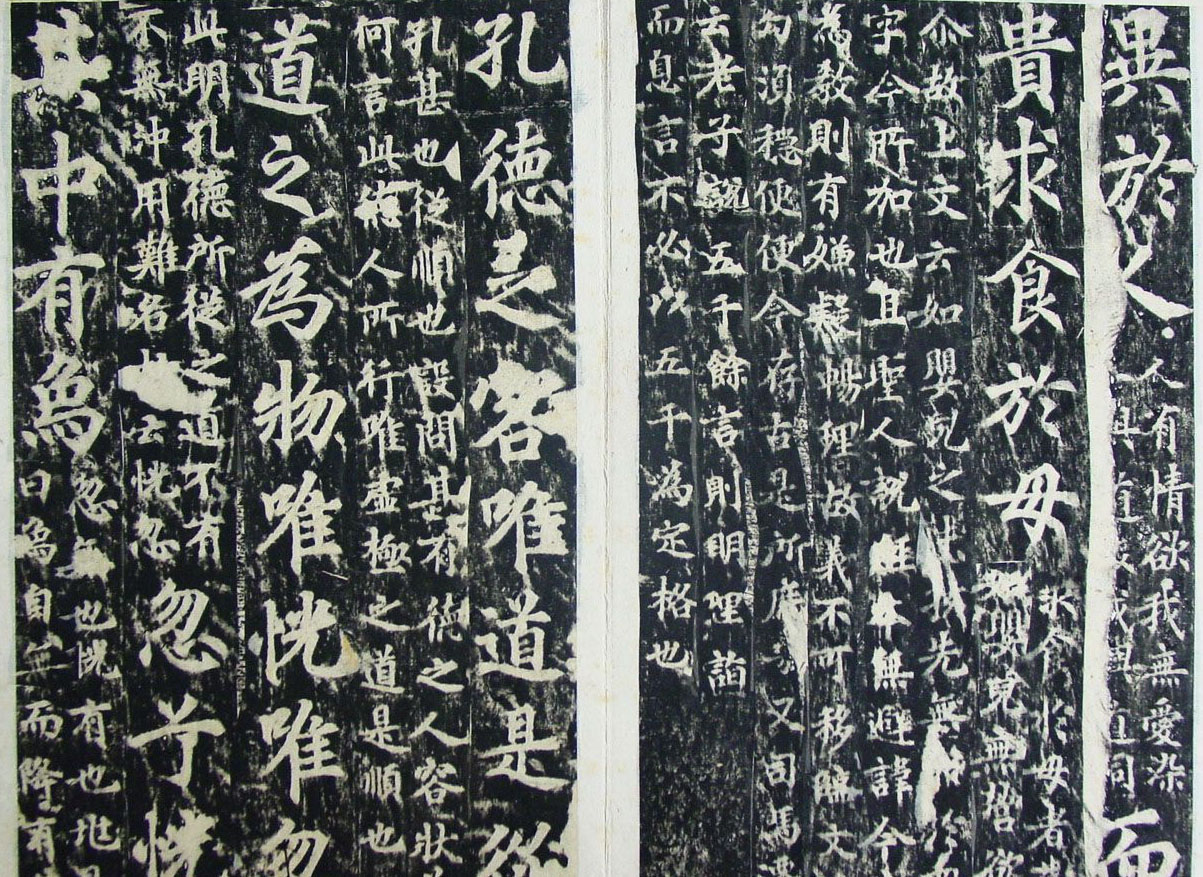 異於人
人有情欲我無愛染
而
貴求食於母
求食於母者
如嬰兒無營欲
尒故上文云如嬰兒之先無
字今所加也且聖人說經本無避諱今
為教則有嫌疑暢理故義不可移臨文
句須穩便便今存古是所庶又司馬
云老子說五千餘言則明理詣
而息言不必以五千為定格也
孔德之容唯道是從
孔甚也從順也設問甚有德之人容狀
何言此德人所行唯虛極之道是順也
道之為物唯恍唯忽
此明孔德所從之道不有
不無沖用難名故云恍忽
忽兮恍
其中有為
忽無也恍有也
曰為自無而降有